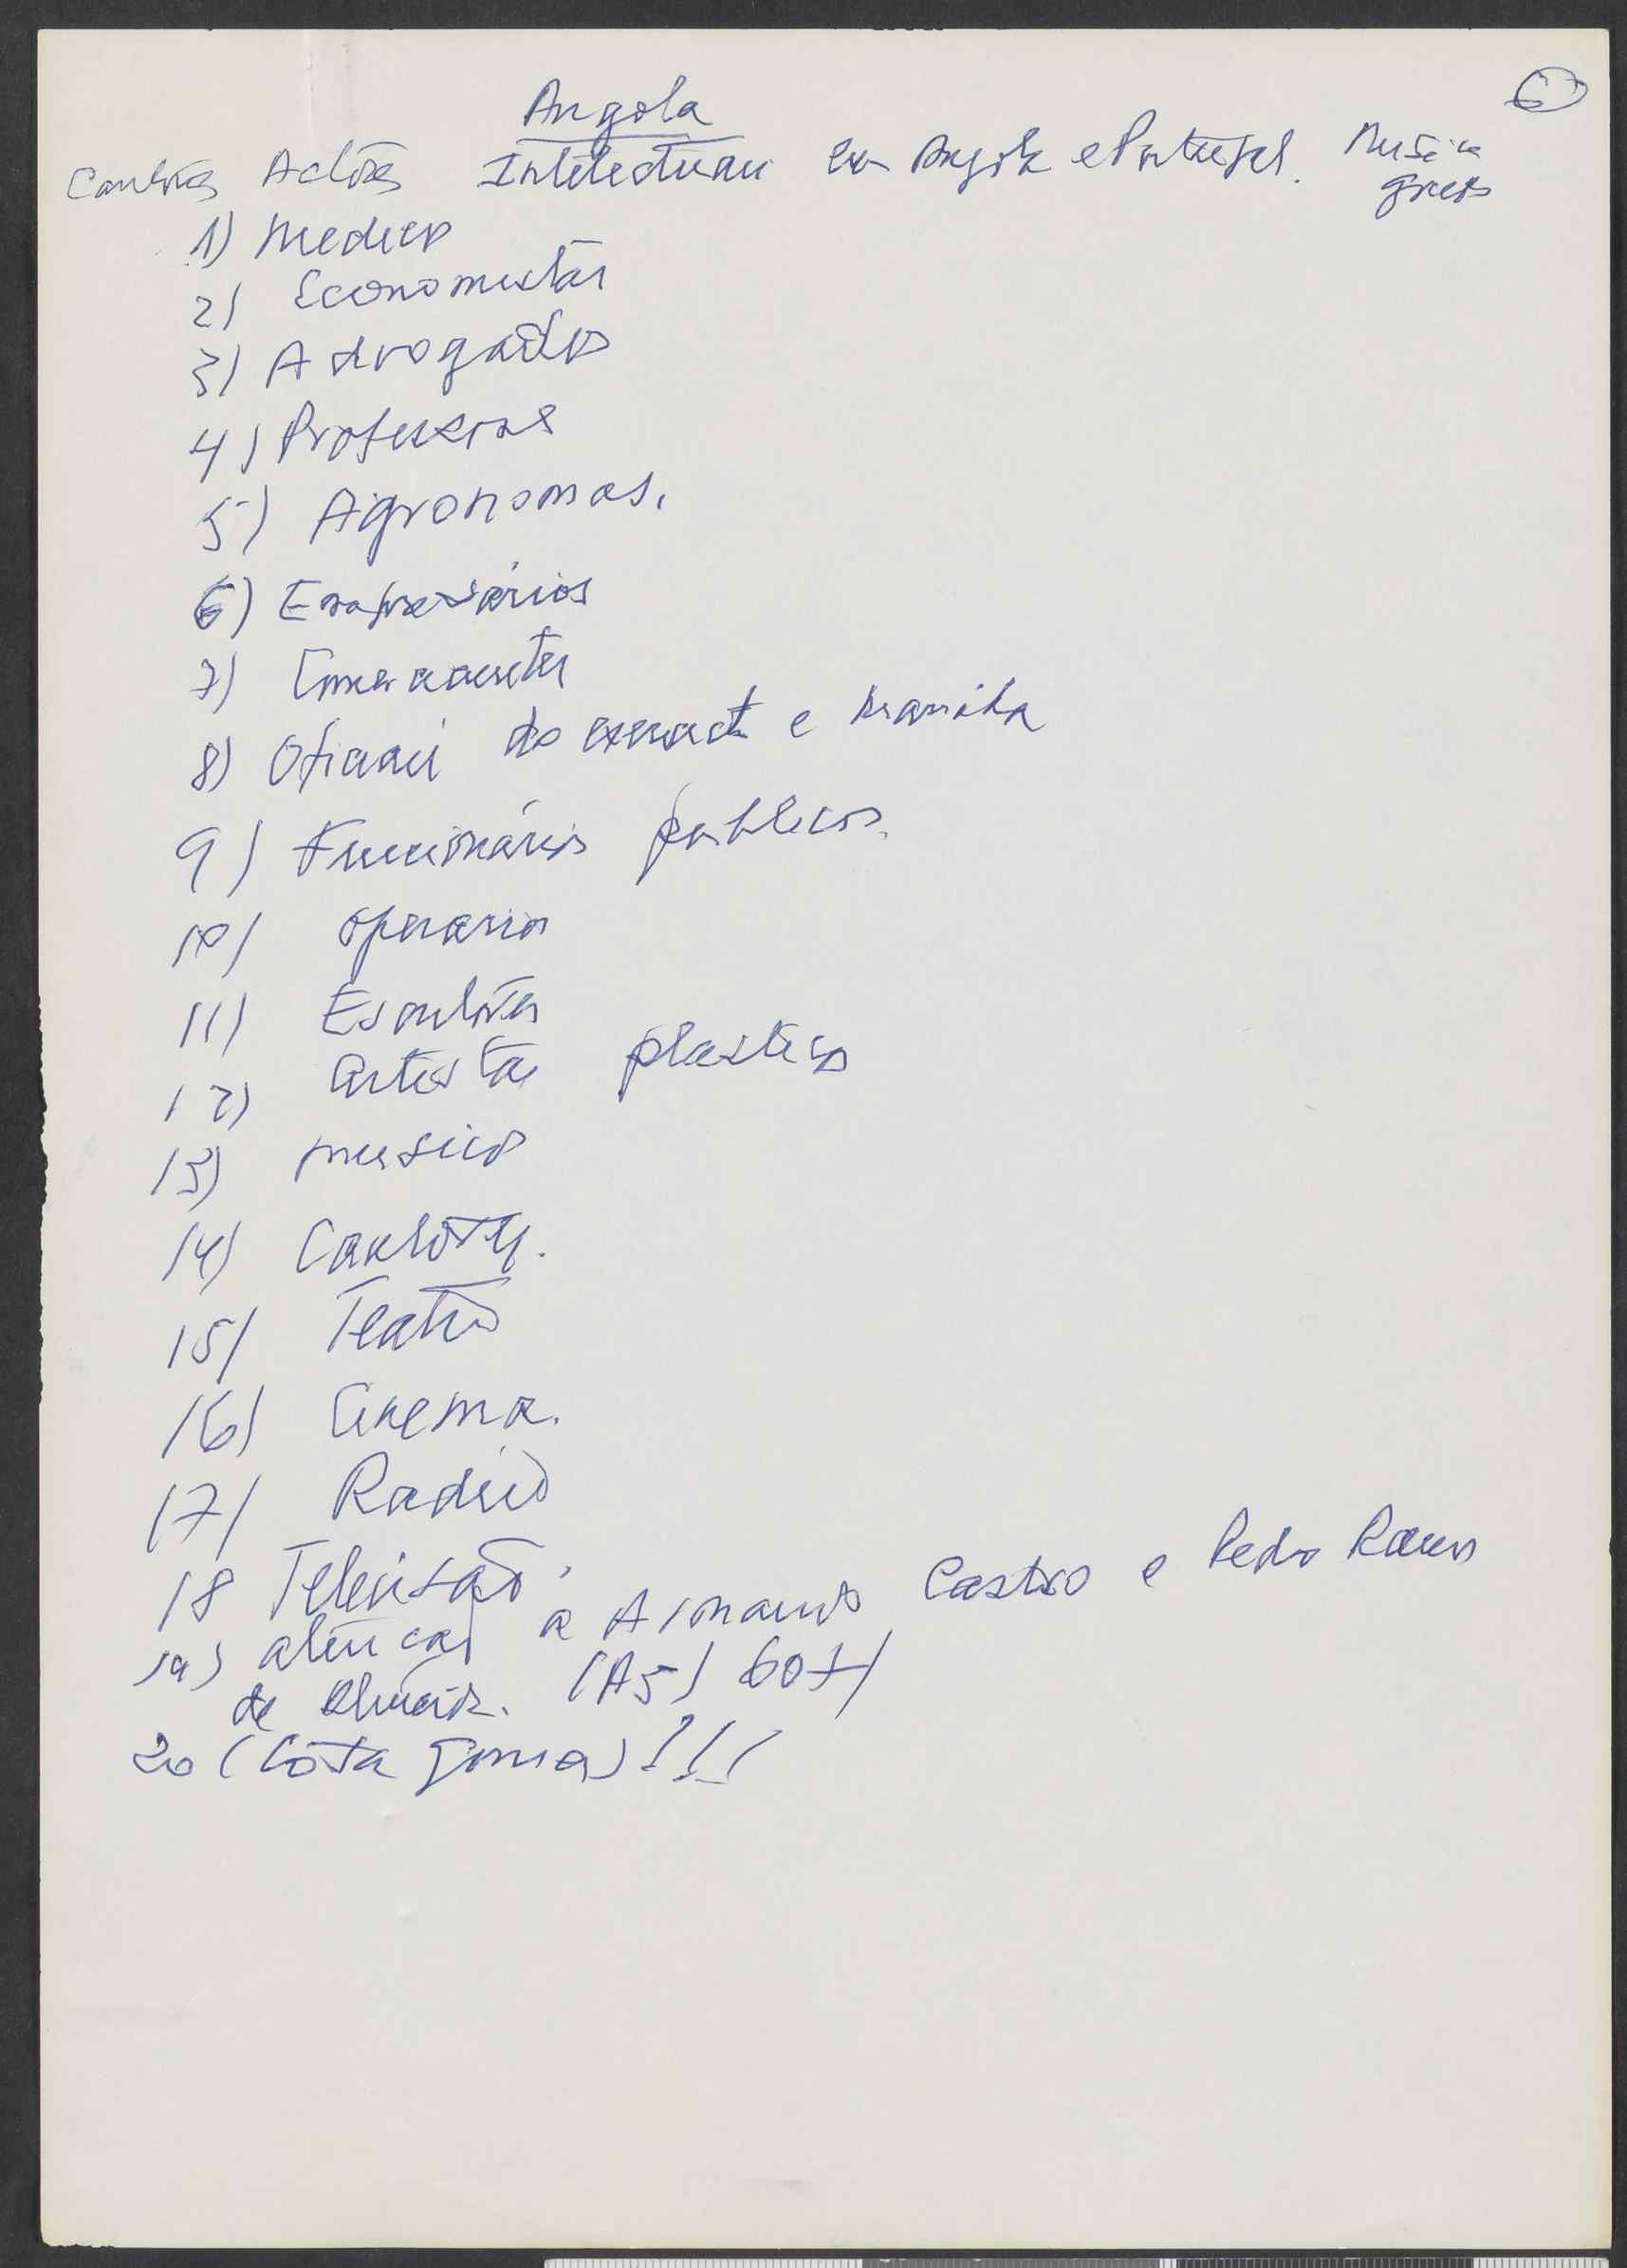 Angola
Cantores Actores Intelectuais em Angola e Portugal. Musica
1) Medicos
2) Economistas
3) Advogados
4) Professores
5) Agronomos.
6) Empresários
7) Comerciantes
8) Oficiais do exercito e marinha
9) Funcionários publicos.
10) operarios
11) Escultores
12) Artistas plasticos
13) musicos
14) Cantores.
15) Teatro
16) Cinema.
17) Radio
18 Televisão.
19) atenção a Armando Castro e Pedro Ramos
de Almeida. (A5)
20 (Cota Gomes)!!!